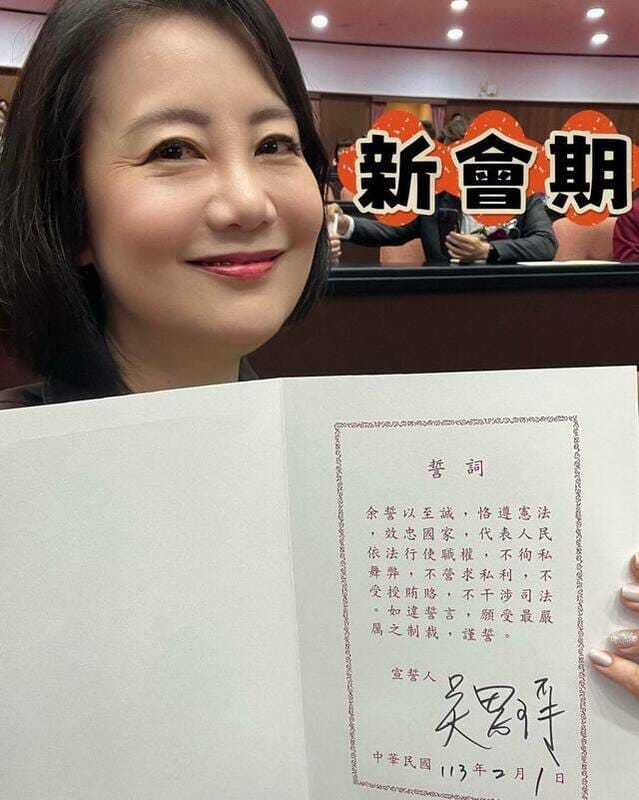 新會期
誓詞
余誓以至誠，恪遵憲法
，效忠國家，代表人民
依法行使職權，不徇私
舞弊，不營求私利，不
受授賄賂，不干涉司法
。如違誓言，願受最嚴
厲之制裁，謹誓。
宣誓人
中華民國 113年2月1日